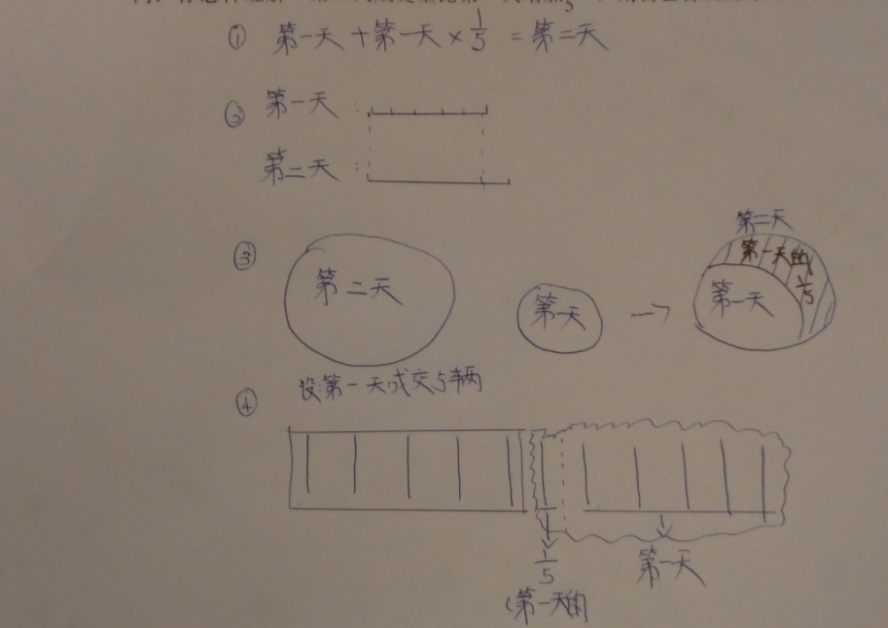 ① 第一天+第一天×1/5=第二天
② 第一天:
第二天:
③ 第二天
第一天
→
第二天
第一天的1/5
第一天
④ 设第一天成交5辆
1/5
(第一天的
第一天